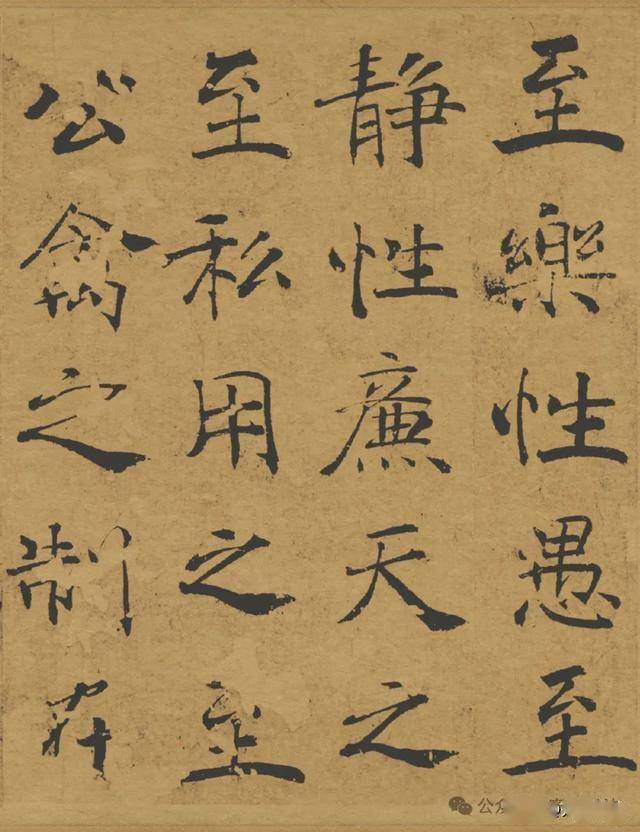 至樂性愚至
静性廉天之
至私用之至
公禽之制
公众